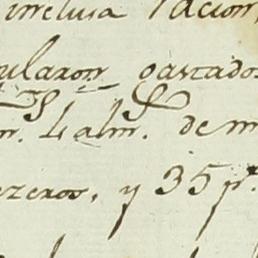 inclusa racion
gularon gastados
m. y alm. de m
ezeros, y 35 p.